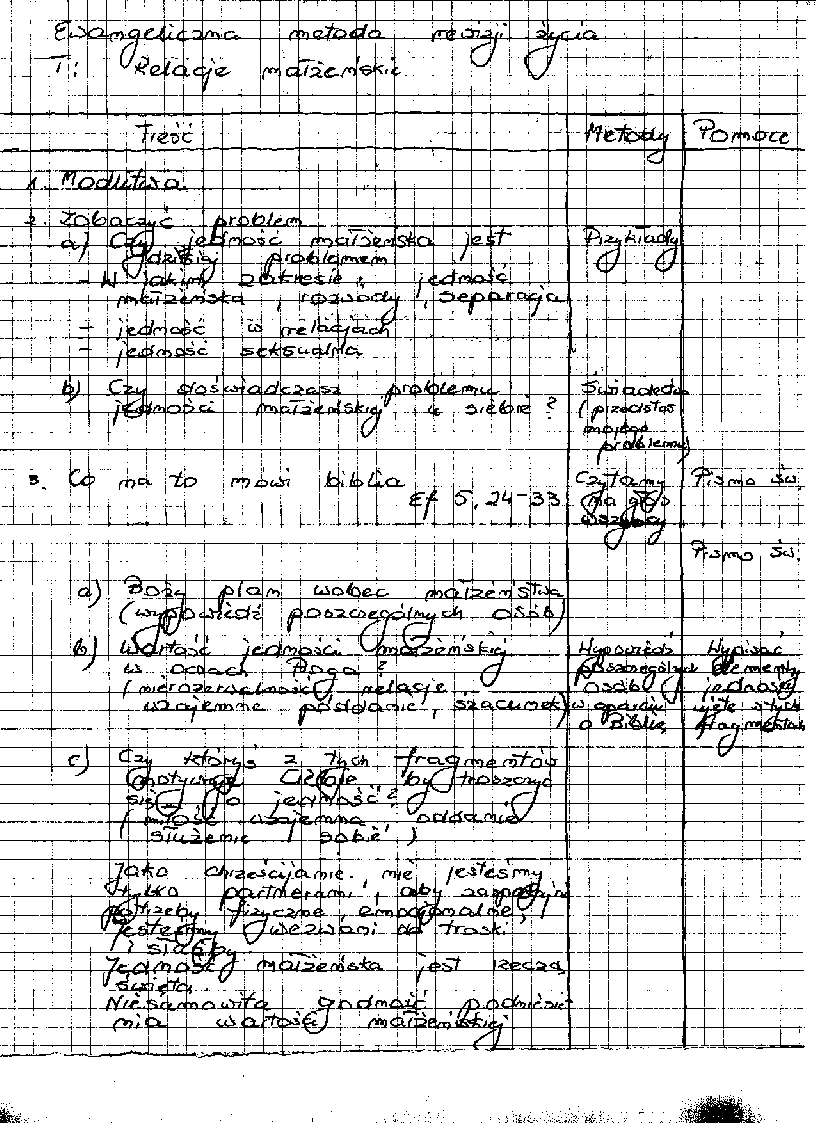 Ewangeliczna metoda rewizji życia
T: Relacje małżeńskie
Treść Metody Pomoce
1. Modlitwa
2. Zobaczyć problem
a) Czy jedność małżeńska jest Przykłady
dzisiaj problemem
- W jakim zakresie, jedność
małżeńska, rozwody, separacja
- jedność w relacjach
- jedność seksualna
b) Czy doświadczasz problemu Świadectwo
jedności małżeńskiej u siebie? (przedstaw
mojego
problemu)
3. Co na to mówi biblia Czytamy Pismo św.
Ef 5, 24-33 na głos
wszyscy
Pismo św.
a) Boży plan wobec małżeństwa
(wypowiedź poszczególnych osób)
b) Wartość jedności małżeńskiej Wypowiedź Wypisać
w oczach Boga? poszczególnych elementy
(nierozerwalność, relacje osób jedności
wzajemne poddanie, szacunek) w oparciu ujęte w tych
o Biblię fragmentach
c) Czy któryś z tych fragmentów
motywuje Ciebie by troszczyć
się o jedność?
(miłość wzajemna, oddanie
służenie sobie)
Jako chrześcijanie nie jesteśmy
tylko partnerami, aby zaspokajać
potrzeby fizyczne, emocjonalne,
jesteśmy wezwani do troski
i służby.
Jedność małżeńska jest rzeczą
świętą.
Niesamowita godność podniesie
nia wartości małżeńskiej